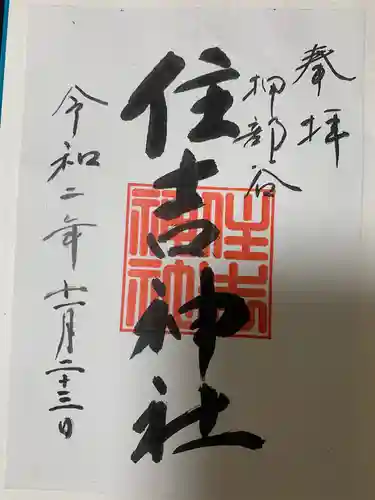 奉拝
押部谷
住吉神社
住吉神社
令和二年十二月二十三日